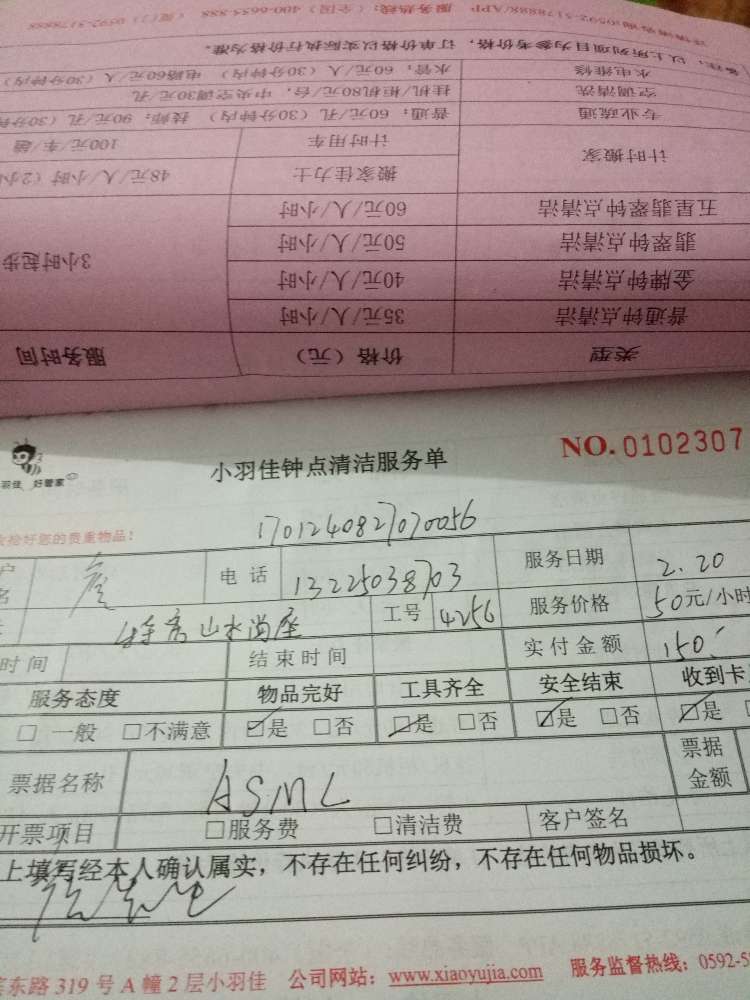 详情请查询0592-5178888/APP 服务热线：（全国）400-6655-888 （厦门）0592-5178888
备注：以上所列项目为参考价格，订单价格以实际执行价格为准。
水电维修 水管：60元/人（30分钟内） 电路60元/人（30分钟内）
空调清洗 挂机/柜机80元/台，中央空调30元/孔
专业疏通 普通：60元/孔（30分钟内） 技师：90元/孔（30分钟
计时搬家 计时用车 100元/车/趟
搬家佳力士 48元/人/小时（2小
五星翡翠钟点清洁 60元/人/小时
翡翠钟点清洁 50元/人/小时 3小时起步
金牌钟点清洁 40元/人/小时
普通钟点清洁 35元/人/小时
类型 价格（元） 服务时间
羽佳 好管家
小羽佳钟点清洁服务单
NO.0102307
收拾好您的贵重物品！
17012408270 70056
户名 詹 电话 13225038703 服务日期 2.20
山水尚座 工号 4256 服务价格 50元/小时
时间 结束时间 实付金额 150
服务态度 物品完好 工具齐全 安全结束 收到卡
□一般 □不满意 ☑是 □否 ☑是 □否 ☑是 □否 ☑是
票据名称 ASML 票据金额
开票项目 □服务费 □清洁费 客户签名
上填写经本人确认属实，不存在任何纠纷，不存在任何物品损坏。
东路319号A幢2层小羽佳 公司网站：www.xiaoyujia.com 服务监督热线：0592-5